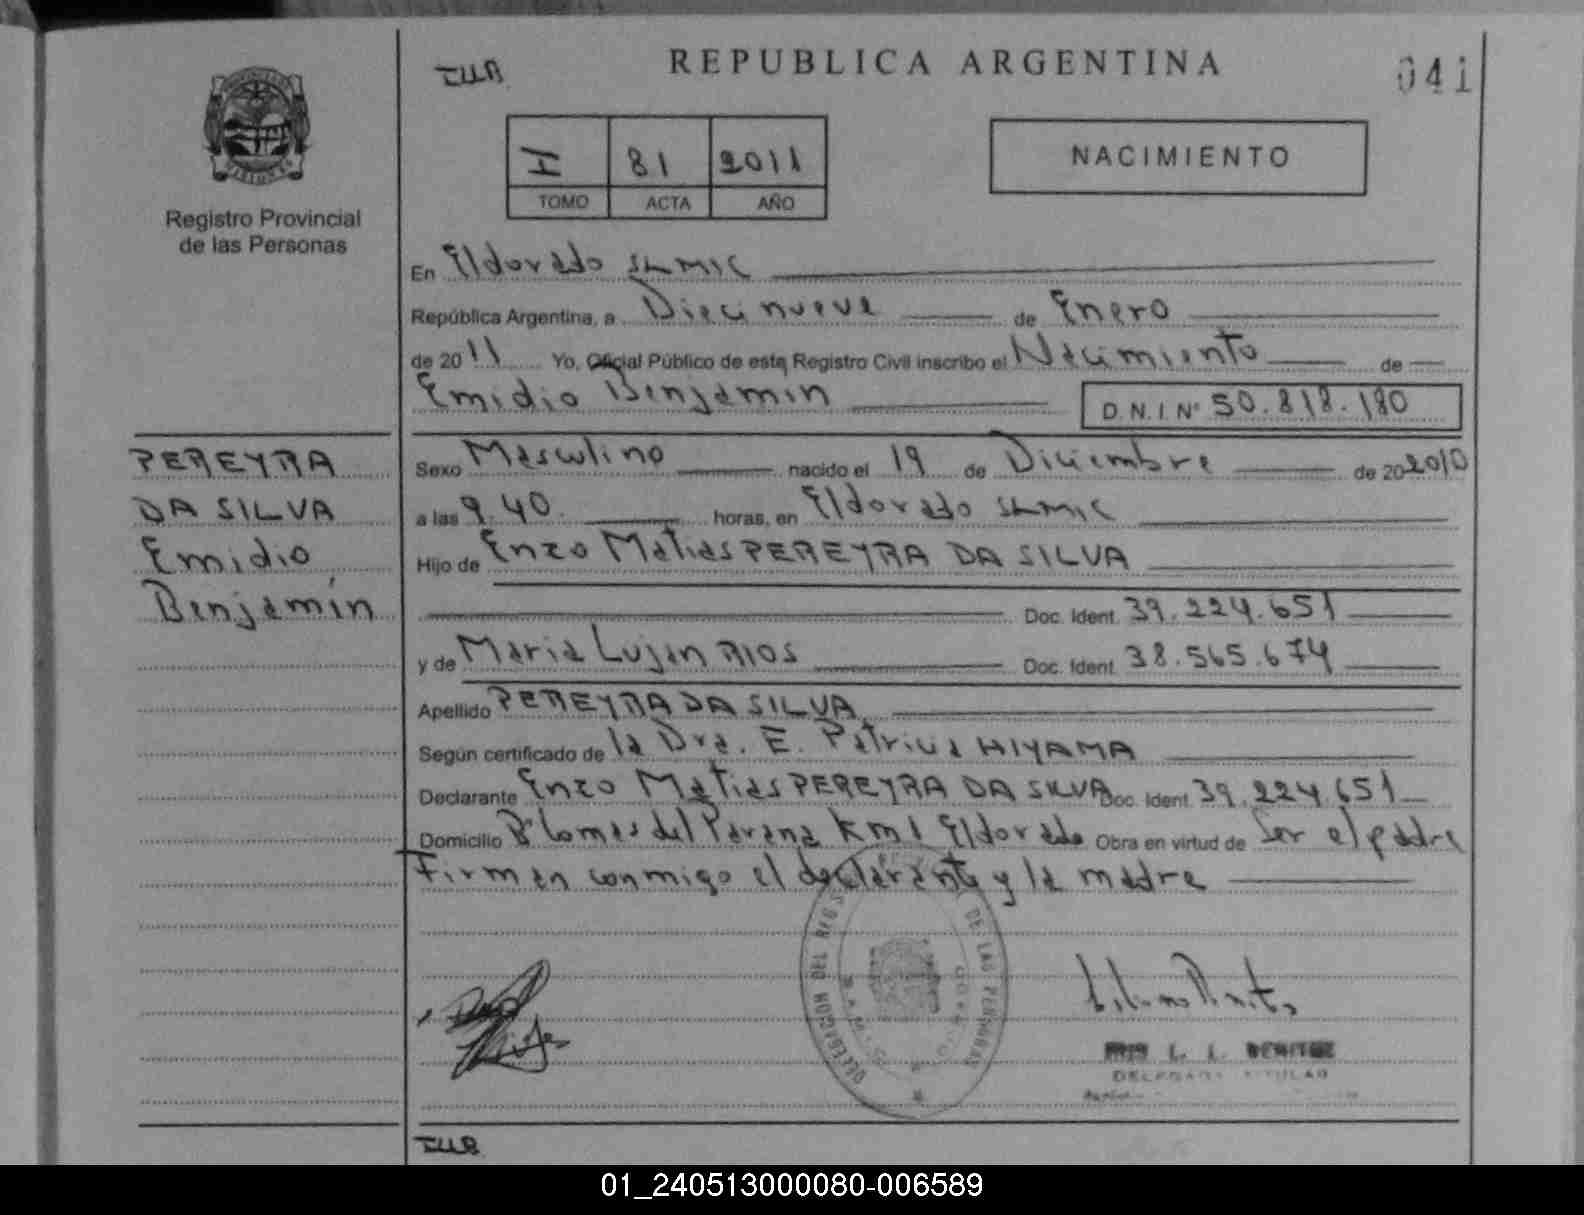 REPUBLICA ARGENTINA
041
Registro Provincial
de las Personas
I 81 2011
TOMO ACTA AÑO
NACIMIENTO
En Eldorado SLMIC
República Argentina, a Diecinueve de Enero
de 2011 Yo, Oficial Público de este Registro Civil inscribo el Nacimiento de
Emidio Benjamin D.N.I. Nº 50.818.180
PEREYRA
DA SILVA
Emidio
Benjamín
Sexo Masculino nacido el 19 de Diciembre de 20 2010
a las 9.40. horas, en Eldorado SLMIC
Hijo de Enzo Matias PEREYRA DA SILVA
Doc. Ident. 39.224.651
y de Maria Lujan RIOS Doc. Ident. 38.565.674
Apellido PEREYRA DA SILVA
Según certificado de la Dra. E. Patricia HIYAMA
Declarante Enzo Matias PEREYRA DA SILVA Doc. Ident. 39.224.651
Domicilio Bº Lomas del Parana Km 1 Eldorado Obra en virtud de Ser el padre
Firman conmigo el declarante y la madre
DELEGACION DEL REGISTRO DE LAS PERSONAS
L. L. BENITEZ
DELEGADA TITULAR
01_240513000080-006589